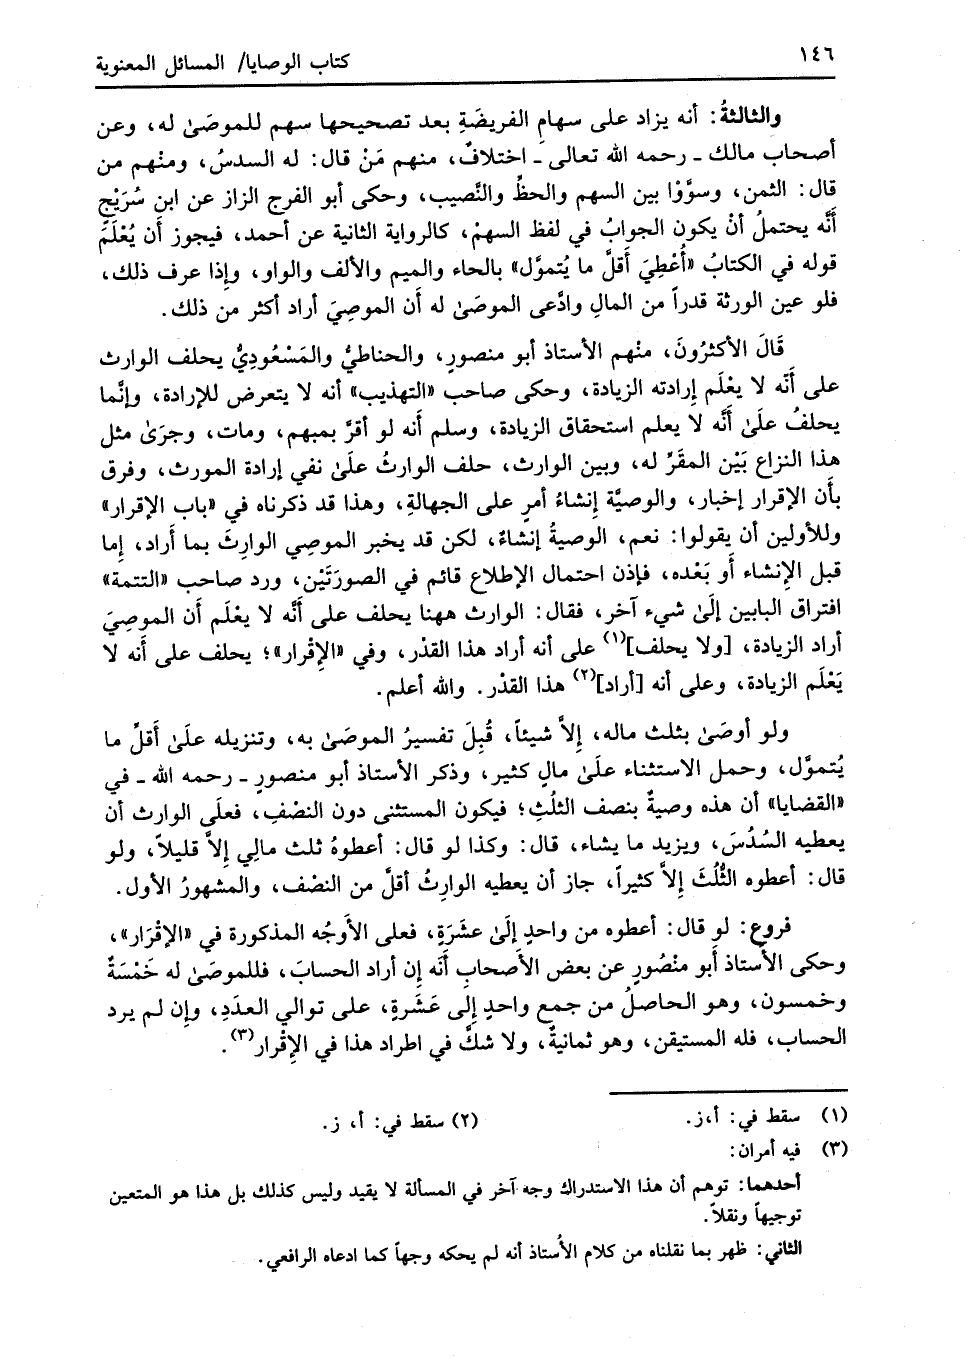 ١٤٦
كتاب الوصايا/ المسائل المعنوية
والثالثةُ: أنه يزاد على سهامِ الفريضَةِ بعد تصحيحها سهم للموصَىٰ له، وعن
أصحاب مالك ـ رحمه الله تعالى ـ اختلافٌ، منهم مَنْ قال: له السدسُ، ومنهم من
قال: الثمن، وسوَّوْا بين السهم والحظِّ والنَّصيب، وحكى أبو الفرج الزاز عن ابن سُرَيْجٍ
أَنَّه يحتملُ أنْ يكون الجوابُ في لفظ السهمْ، كالرواية الثانية عن أحمد، فيجوز أن يُعْلَمَ
قوله في الكتابُ «أُعْطِيَ أَقلَّ ما يُتموَّل» بالحاء والميم والألف والواو، وإذا عرف ذلك،
فلو عين الورثة قدراً من المالِ وادَّعى الموصَىٰ له أن الموصِيَ أراد أكثر من ذلك.
قَالَ الأكثرُونَ، منهم الأستاذ أبو منصورٍ، والحناطيُّ والمَسْعُودِيُّ يحلف الوارث
على أَنَّه لا يعْلَم إرادته الزيادة، وحكى صاحب «التهذيب» أنه لا يتعرض للإرادة، وإنَّما
يحلفُ علَىٰ أَنَّه لا يعلم استحقاق الزيادة، وسلم أَنه لو أقرَّ بمبهم، ومات، وجرَىٰ مثل
هذا النزاع بَيْن المقرِّ له، وبين الوارث، حلف الوارثُ علَىٰ نفي إرادة المورث، وفرق
بأَن الإقرار إخبار، والوصيَّة إنشاءُ أمرٍ على الجهالةِ، وهذا قد ذكرناه في «باب الإقرار»
وللأولين أن يقولوا: نعم، الوصيةُ إنشاءٌ، لكن قد يخبر الموصِي الوارثَ بما أراد، إما
قبل الإنشاء أَو بَعْده، فإذن احتمال الإطلاع قائم في الصورَتَيْن، ورد صاحب «التتمة»
افتراق البابين إلَىٰ شيء آخر، فقال: الوارث ههنا يحلف على أَنَّه لا يعْلَم أن الموصِيَ
أراد الزيادة، [ولا يحلف](١) على أنه أراد هذا القدْر، وفي «الإقْرار»؛ يحلف على أنه لا
يَعْلَم الزيادة، وعلى أنه [أراد](٢) هذا القدْر. والله أعلم.
ولو أوصَىٰ بثلث ماله، إلاَّ شيئاً، قُبِلَ تفسيرُ الموصَىٰ به، وتنزيله علَىٰ أَقلِّ ما
يُتموَّل، وحمل الاستثناء علَىٰ مالٍ كثير، وذكر الأستاذ أبو منصورٍ ـ رحمه الله ـ في
«القضايا» أن هذه وصيةٌ بنصف الثلُثِ؛ فيكون المستثنى دون النصْفِ، فعلَى الوارث أن
يعطيه السُدُسَ، ويزيد ما يشاء، قال: وكذا لو قال: أعطوهُ ثلث مالِي إلاَّ قليلاً، ولو
قال: أعطوه الثُّلُثَ إلاَّ كثيراً، جاز أن يعطيه الوارِثُ أقلَّ من النصْف، والمشهورُ الأول.
فروع: لو قال: أعطوه من واحدٍ إلَىٰ عشَرَةٍ، فعلى الأَوجُه المذكورة في «الإقْرار»،
وحكى الأستاذ أبو منْصُورٍ عن بعض الأَصحابِ أَنَّه إن أراد الحسابَ، فللموصَىٰ له خَمْسَةٌ
وخمسون، وهو الحاصلُ من جمع واحدٍ إلى عَشَرةٍ، على توالي العدَدِ، وإن لم يرد
الحساب، فله المستيقن، وهو ثمانيةٌ، ولا شكَّ في اطراد هذا في الإقْرار(٣).
(١) سقط في: أ،ز.
(٢) سقط في: أ، ز.
(٣) فيه أمران:
أحدهما: توهم أن هذا الاستدراك وجه آخر في المسألة لا يقيد وليس كذلك بل هذا هو المتعين
توجيهاً ونقلاً.
الثاني: ظهر بما نقلناه من كلام الأستاذ أنه لم يحكه وجهاً كما ادعاه الرافعي.